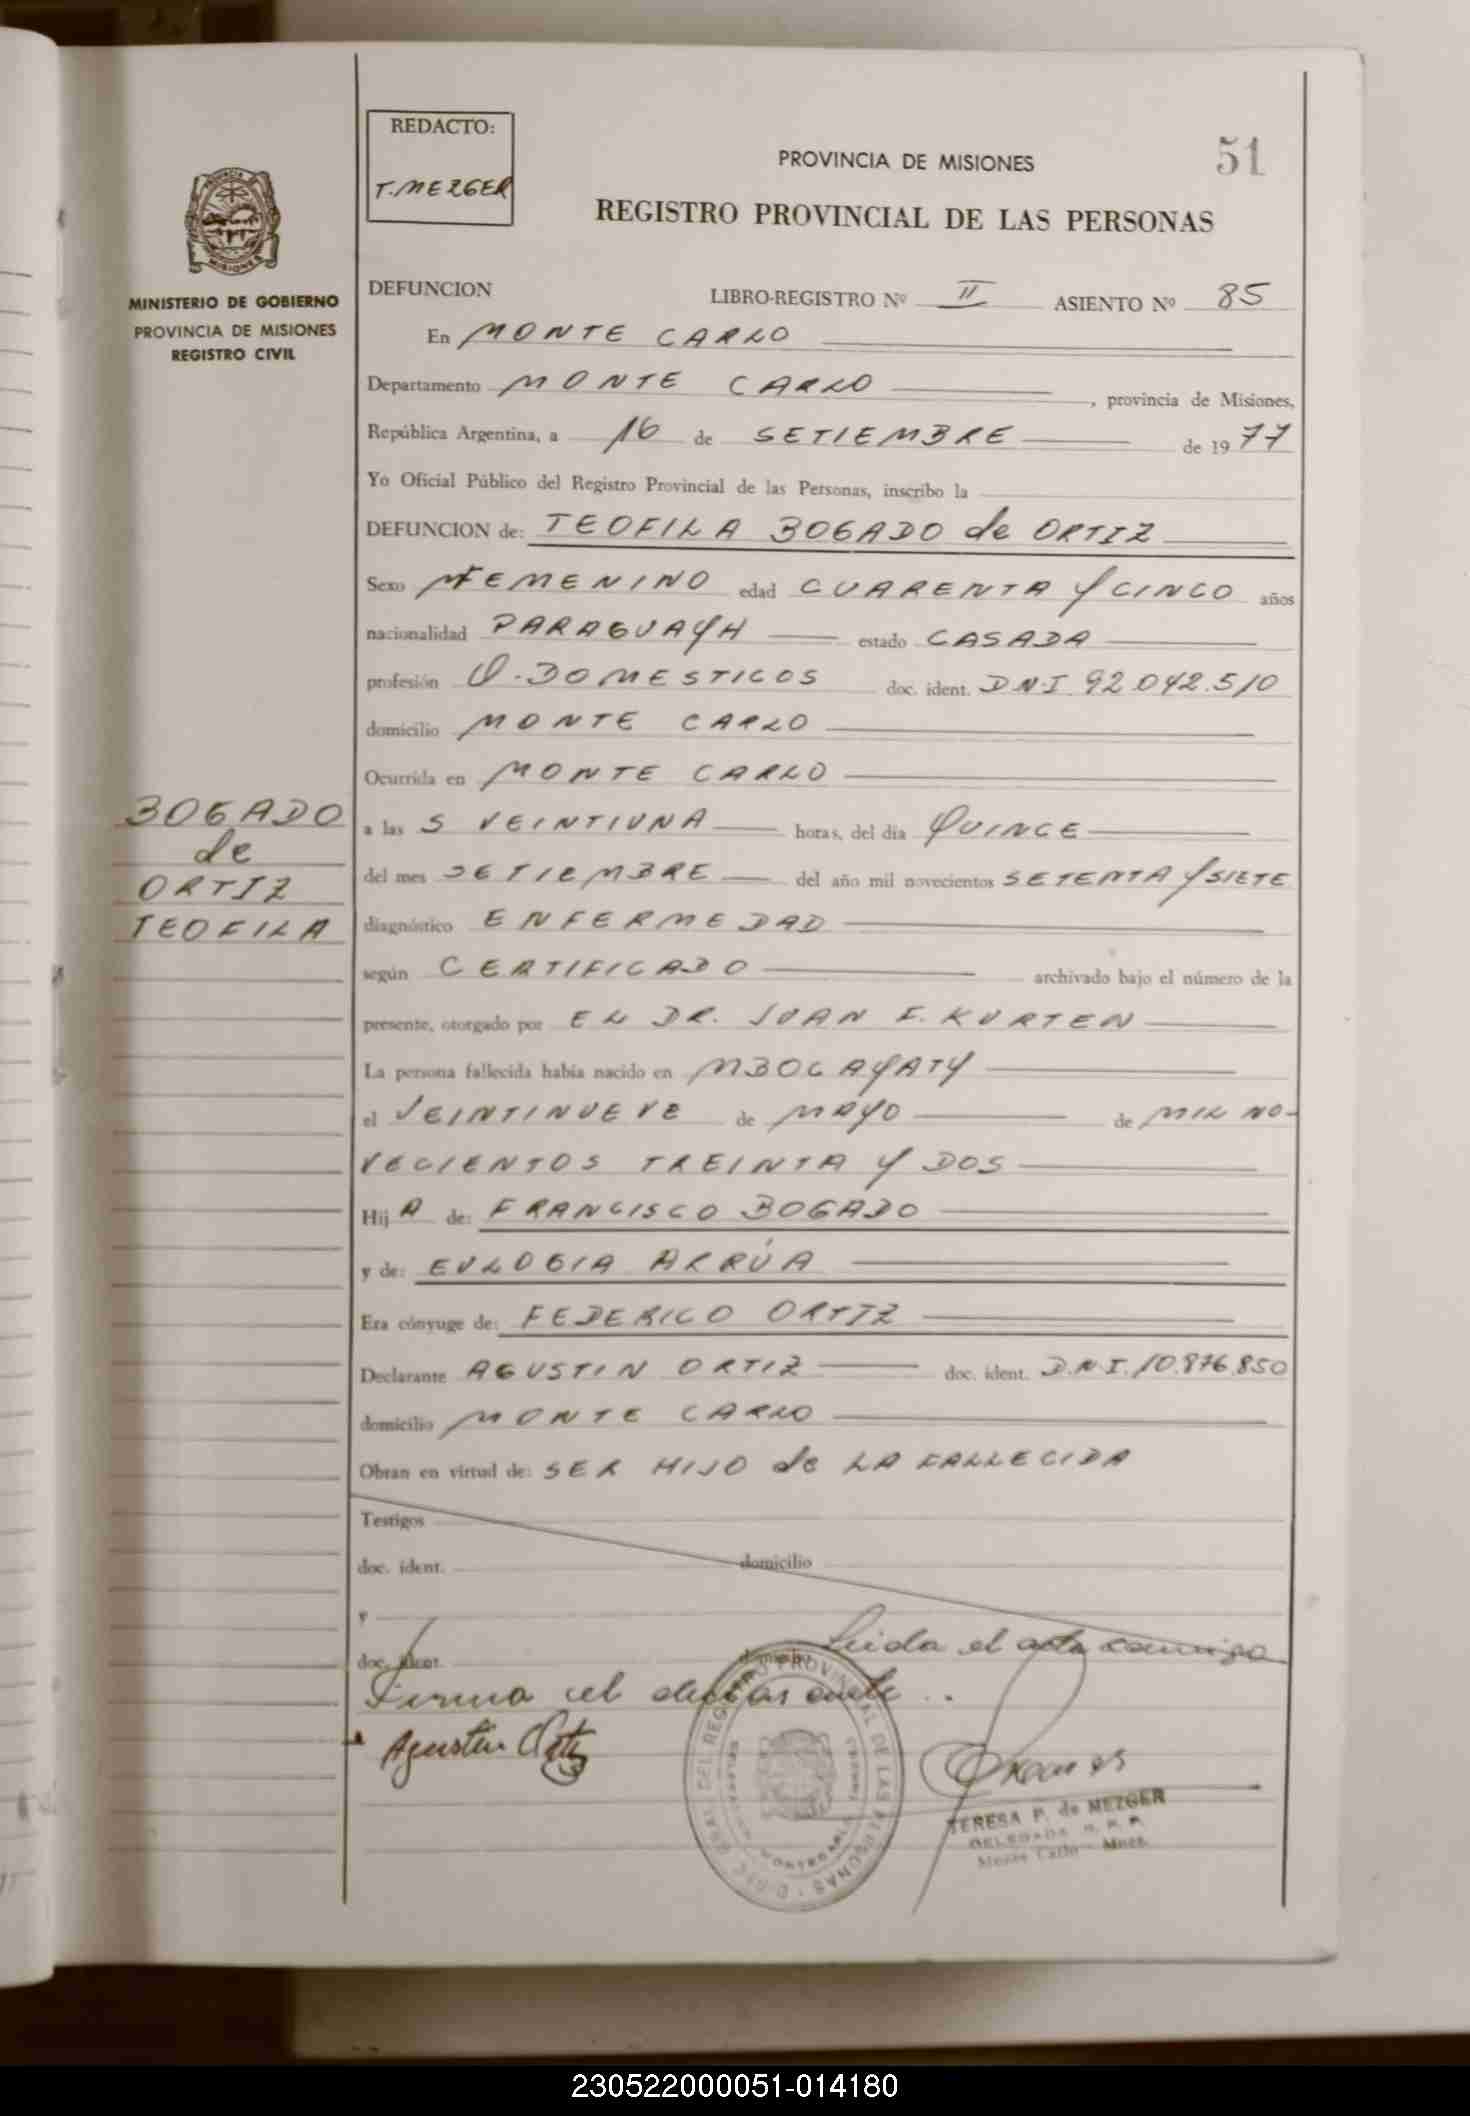 REDACTO:
T. MEZGER
PROVINCIA DE MISIONES
51
REGISTRO PROVINCIAL DE LAS PERSONAS
MINISTERIO DE GOBIERNO
PROVINCIA DE MISIONES
REGISTRO CIVIL
DEFUNCION LIBRO-REGISTRO Nº II ASIENTO Nº 85
En MONTE CARLO
Departamento MONTE CARLO, provincia de Misiones,
República Argentina, a 16 de SETIEMBRE de 1977
Yo Oficial Público del Registro Provincial de las Personas, inscribo la
DEFUNCION de: TEOFILA BOGADO de ORTIZ
Sexo FEMENINO edad CUARENTA Y CINCO años
nacionalidad PARAGUAYA estado CASADA
profesión Q. DOMESTICOS doc. ident. D.N.I. 92.042.510
domicilio MONTE CARLO
Ocurrida en MONTE CARLO
BOGADO
de
ORTIZ
TEOFILA
a las S VEINTIUNA horas, del día QUINCE
del mes SETIEMBRE del año mil novecientos SETENTA Y SIETE
diagnóstico ENFERMEDAD
según CERTIFICADO archivado bajo el número de la
presente, otorgado por EL DR. JUAN E. KURTEN
La persona fallecida había nacido en MBOCAYATY
el VEINTINUEVE de MAYO de MIL NO-
VECIENTOS TREINTA Y DOS
Hij A de: FRANCISCO BOGADO
y de: EULOGIA ARRÚA
Era cónyuge de: FEDERICO ORTIZ
Declarante AGUSTIN ORTIZ doc. ident. D.N.I. 10.876.850
domicilio MONTE CARLO
Obran en virtud de: SER HIJO de LA FALLECIDA
Testigos
doc. ident. domicilio
y
doc. ident. domicilio
Leida el acta
Firma el declarante
Agustin Ortiz
TERESA P. de MEZGER
DELEGADA R. P. P.
Monte Carlo - Mnes.
230522000051-014180